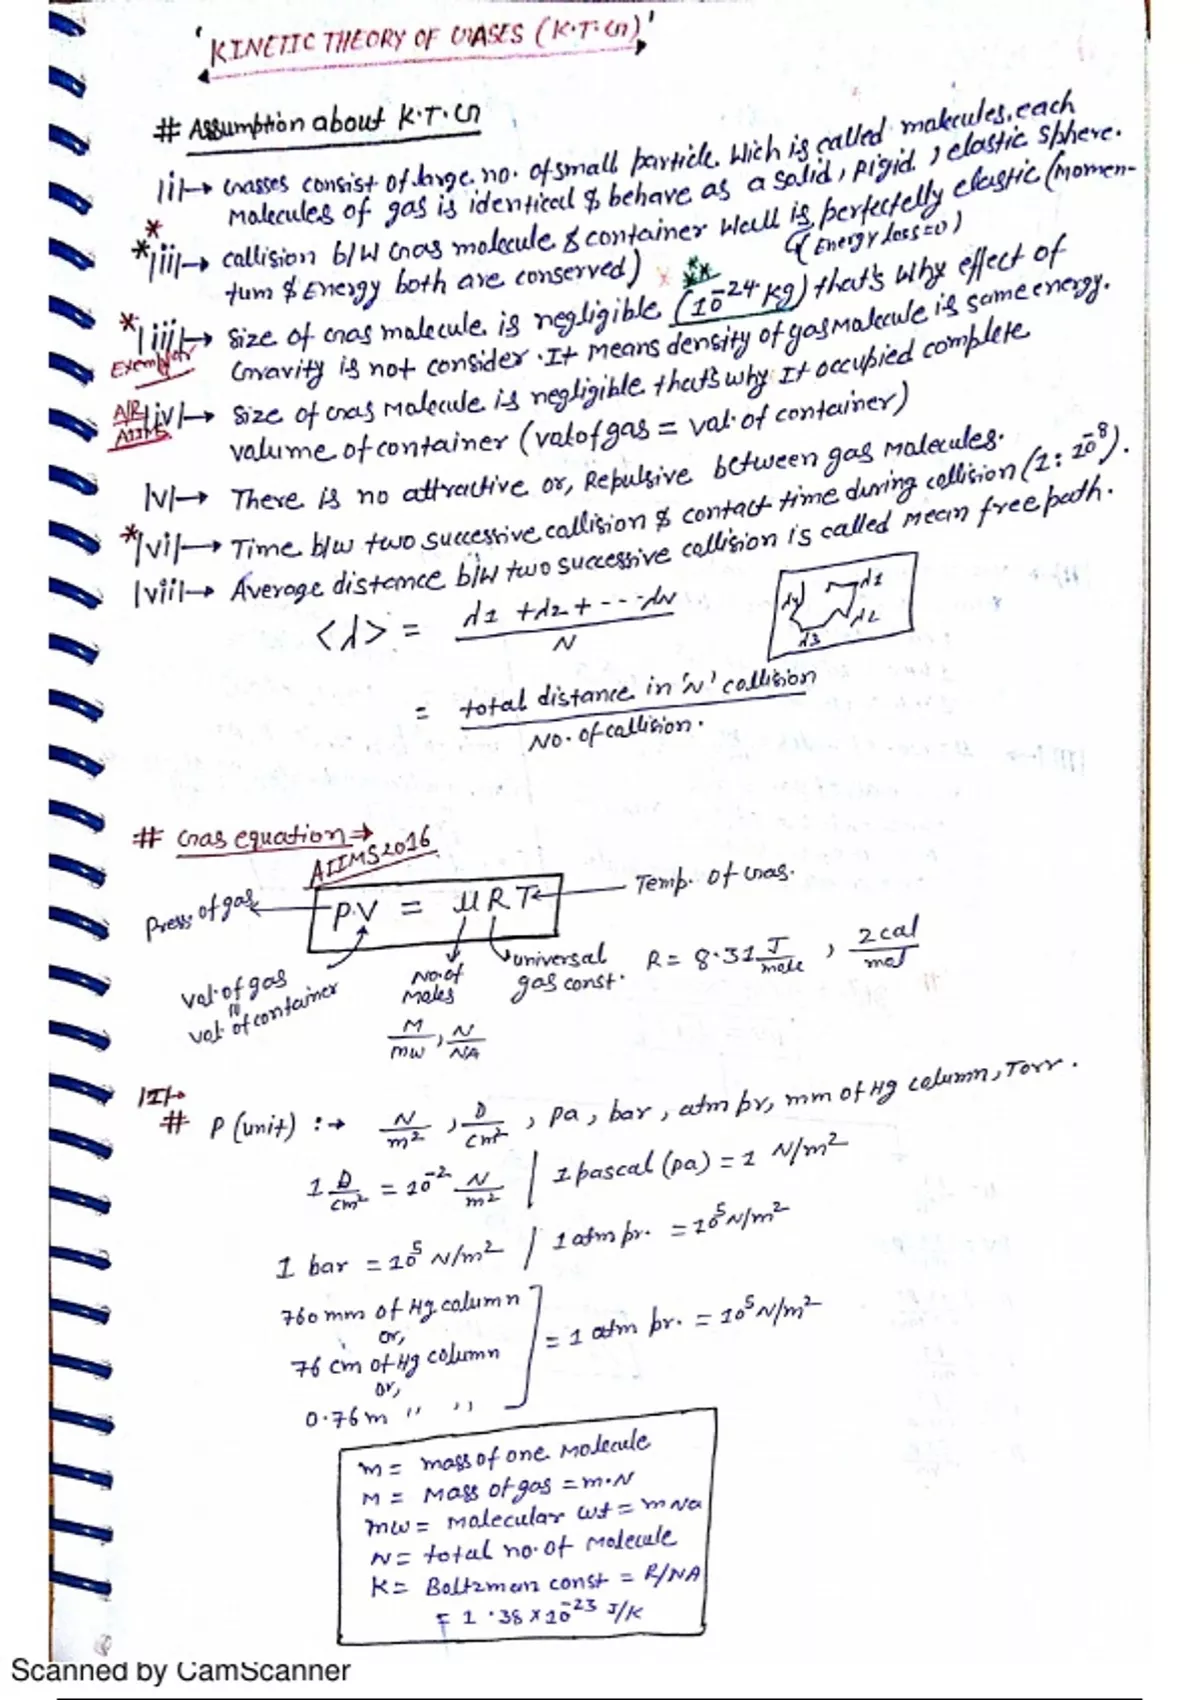 'KINETIC THEORY OF GASES (K.T.G)'
# Assumption about K.T.G
|i|→ Gasses consist of large no. of small particle. Wich is called molecules, each
Molecules of gas is identical & behave as a solid, rigid, elastic sphere.
* *|ii|→ collision b/w Gas molecule & container Wall is perfectelly elastic (Momen-
tum & Energy both are conserved) (Energy loss=0)
* |iii|→ Size of Gas molecule is negligible (10^-24 kg) that's why effect of
Exemplar Gravity is not consider. It means density of gas Molecule is same energy.
A/R AIIMS |iv|→ Size of Gas Molecule is negligible that's why It occupied complete
volume of container (vol of gas = vol. of container)
|v|→ There is no attractive or, Repulsive between gas molecules.
*|vi|→ Time b/w two successive collision & contact time during collision (1: 10^-8).
|vii|→ Average distance b/w two successive collision is called Mean free path.
<λ> = λ1 + λ2 + --- λN / N
λ1 λ2 λ3 λ4
= total distance in 'N' collision / No. of collision.
# Gas equation →
AIIMS 2016
Press. of gas P.V = μRT Temp. of Gas.
vol. of gas
"
vol. of container
No. of Moles
M/mw, N/NA
universal gas const. R = 8.31 J/mole, 2 cal/mol
|I|→
# P (unit) :→ N/m², D/cm², pa, bar, atm pr, mm of Hg column, Torr.
1 D/cm² = 10^-2 N/m² | 1 pascal (pa) = 1 N/m²
1 bar = 10^5 N/m² / 1 atm pr. = 10^5 N/m²
760 mm of Hg column
or,
76 cm of Hg column = 1 atm pr. = 10^5 N/m²
or,
0.76 m '' ''
m = mass of one Molecule
M = Mass of gas = m.N
mw = molecular wt = m Na
N = total no. of Molecule
K = Boltzman const = R/NA
= 1.38 x 10^-23 J/K
Scanned by CamScanner